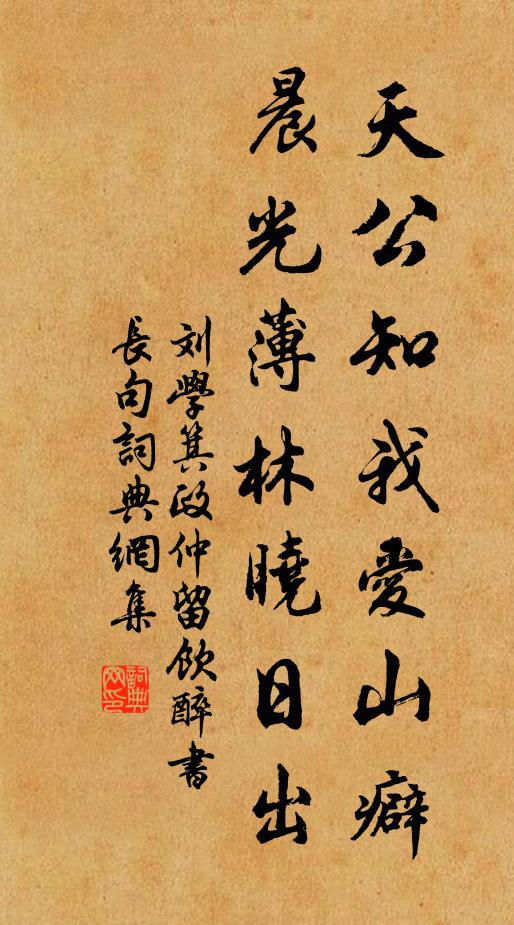 天公知我愛山癖
晨光薄林曉日出
刘學箕政仲留飲醉書
長句詞典網集
詞典网印